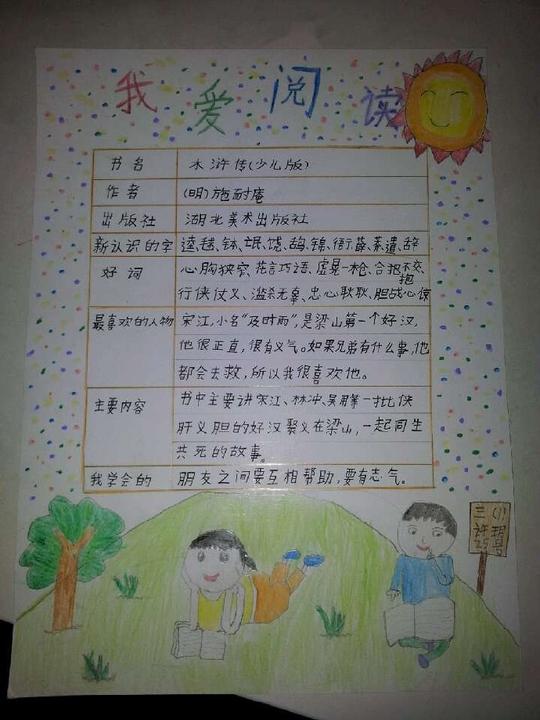 我爱阅读
书名 水浒传(少儿版)
作者 (明)施耐庵
出版社 湖北美术出版社
新认识的字 逵、毬、钵、氓、饶、鸪、锦、衙、薛、荼、遣、辞
好词 心胸狭窄、花言巧语、虚晃一枪、合抱不交、抱
行侠仗义、滥杀无辜、忠心耿耿、胆战心惊
最喜欢的人物 宋江,小名“及时雨”,是梁山第一个好汉,
他很正直,很有义气。如果兄弟有什么事,他
都会去救,所以我很喜欢他。
主要内容 书中主要讲宋江、林冲、吴用等一批侠
肝义胆的好汉聚义在梁山,一起同生
共死的故事。
我学会的 朋友之间要互相帮助,要有志气。
三(1)
许玥
25号